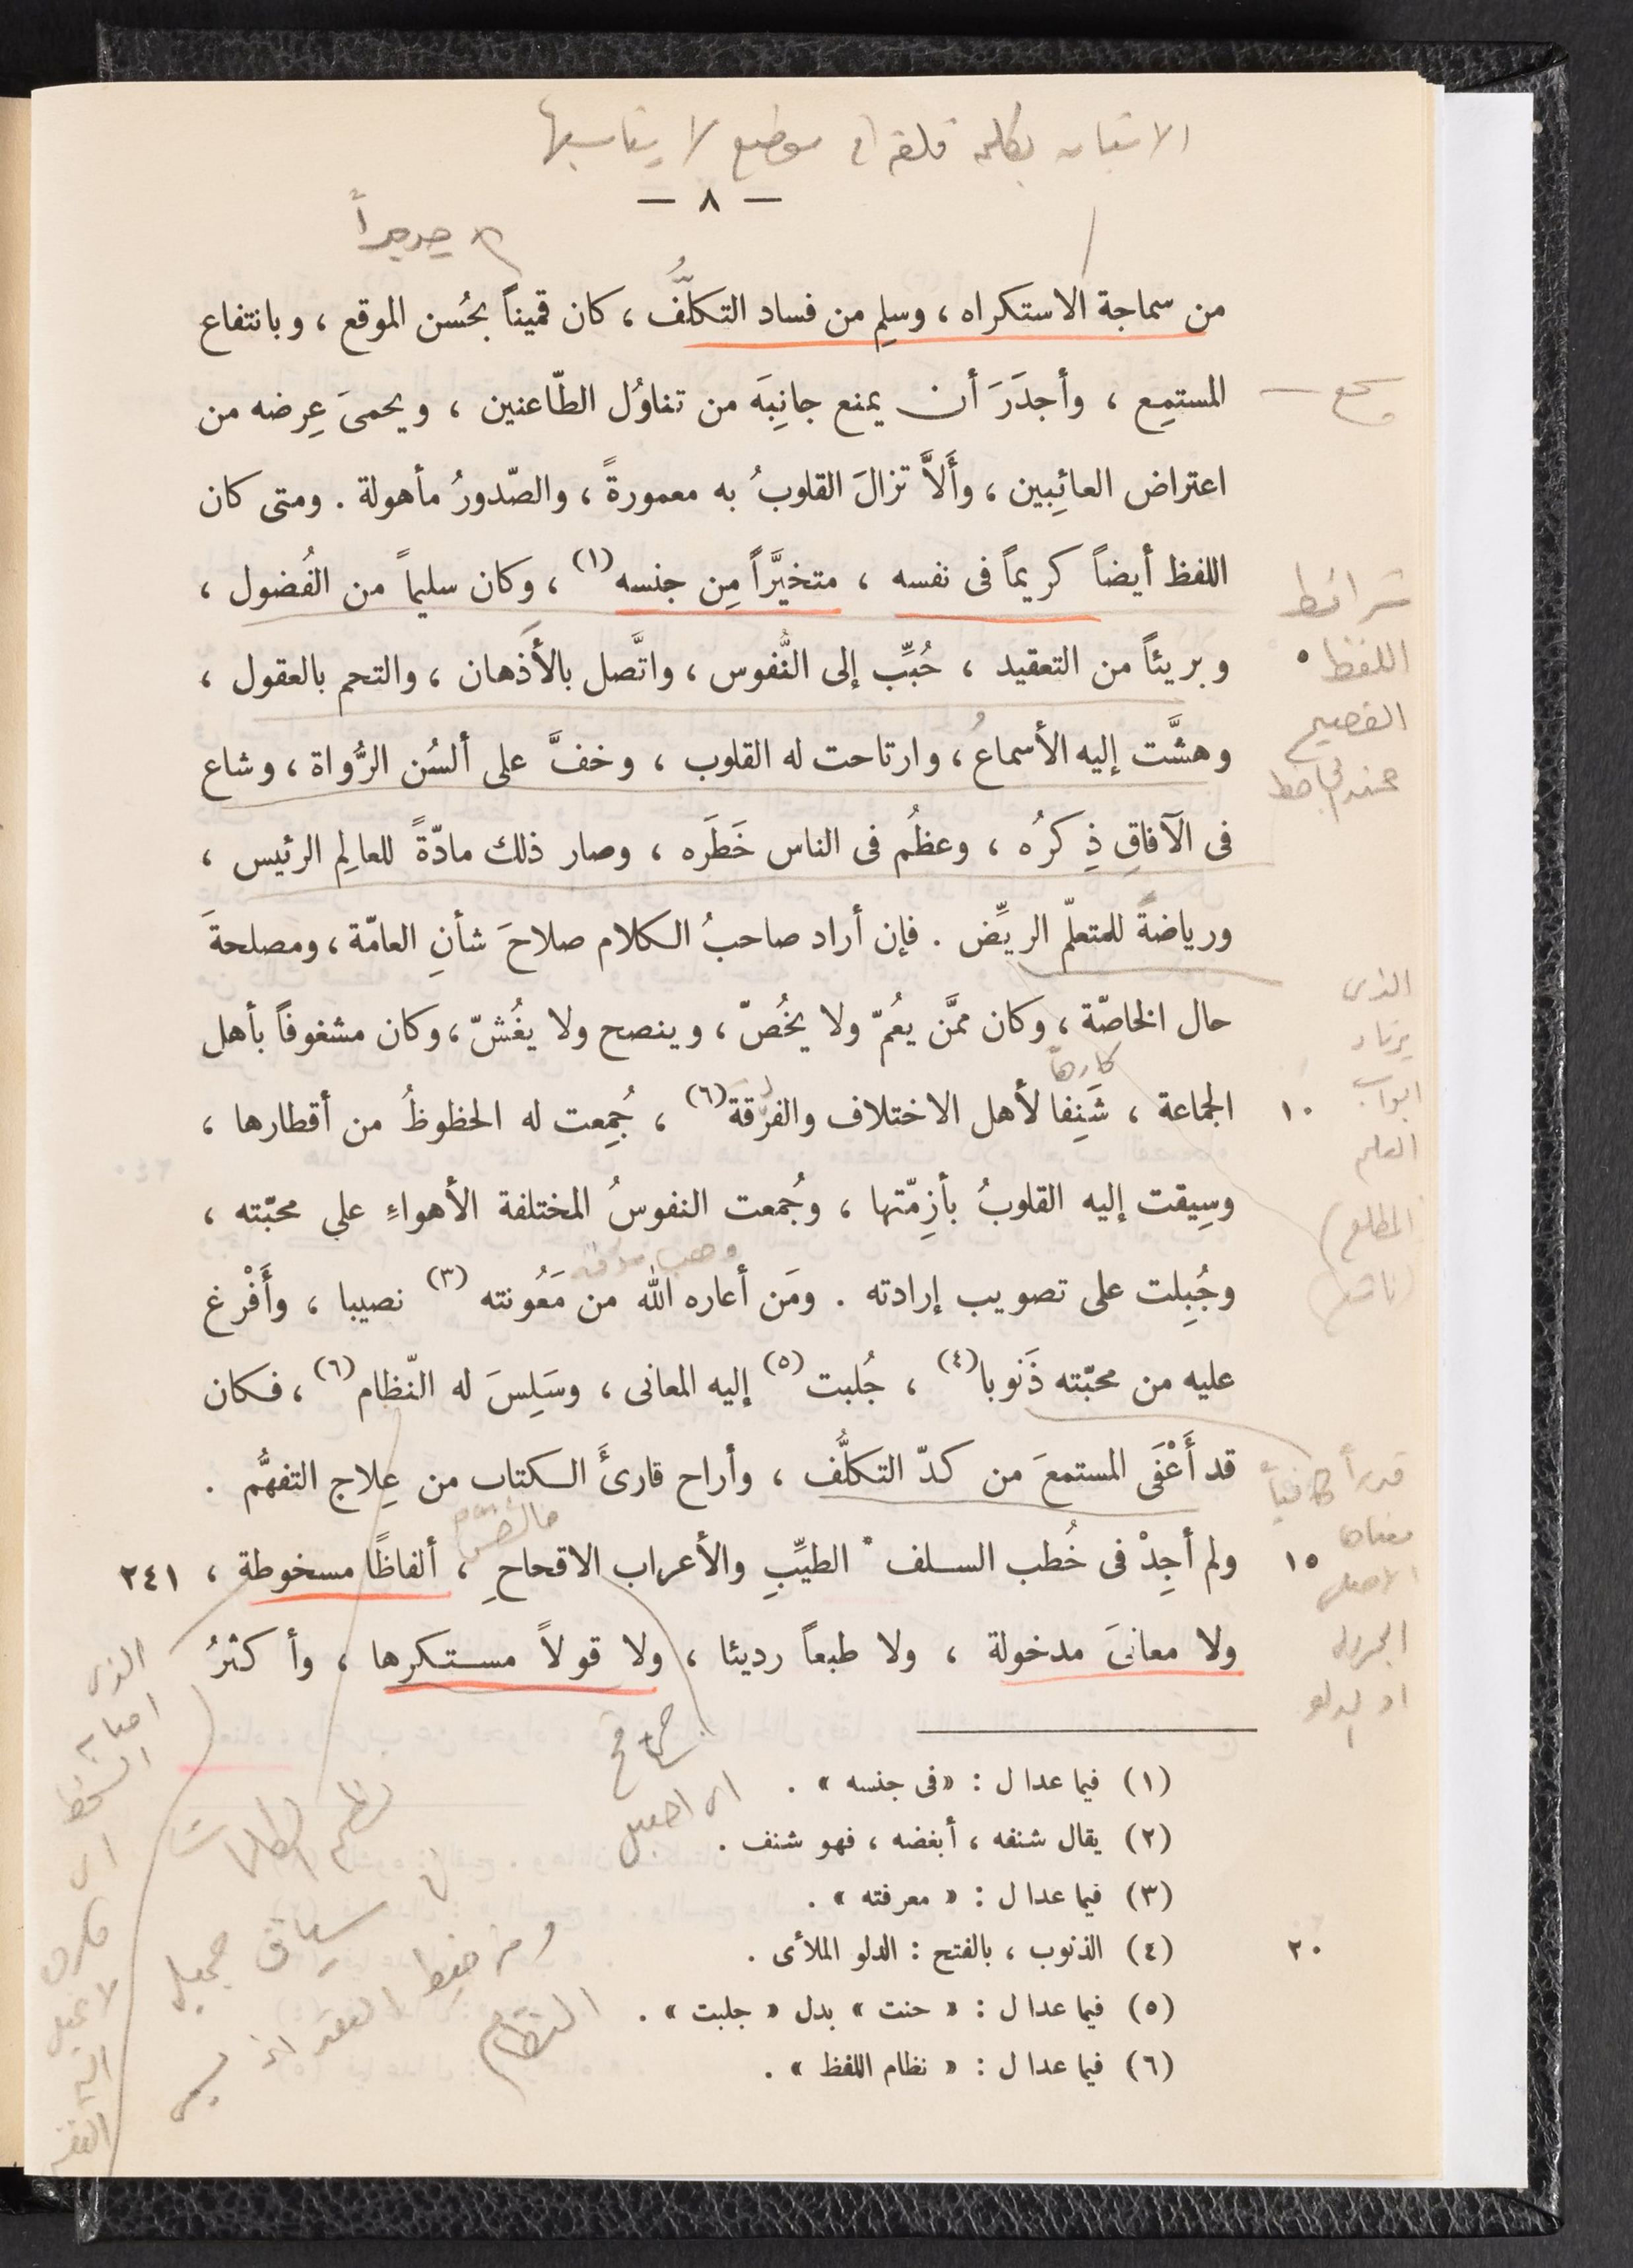 الاتيان بكلمة قلقة في موضع لا يناسبها
— ٨ —
جديراً
من سماجة الاستكراه ، وسلِم من فساد التكلُّف ، كان قميناً بحُسن الموقع ، وبانتفاع
المستمِع ، وأجدَرَ أن يمنع جانِبَه من تناوُل الطّاعنين ، ويحمىَ عِرضه من
اعتراض العائِبين ، وأَلاَّ تزالَ القلوبُ به معمورةً ، والصّدورُ مأهولة . ومتى كان
اللفظ أيضاً كريماً فى نفسه ، متخيَّراً مِن جنسه (١) ، وكان سليماً من الفُضول ،
شرائط
وبريئاً من التعقيد ، حُبِّب إلى النُّفوس ، واتَّصل بالأَذهان ، والتحم بالعقول ، ٥
اللفظ
الفصيح
وهشَّت إليه الأسماعُ ، وارتاحت له القلوب ، وخفَّ على ألسُن الرُّواة ، وشاع
عند الجاحظ
فى الآفاقِ ذِكرُه ، وعظُم فى الناس خَطَره ، وصار ذلك مادّةً للعالِم الرئيس ،
ورياضةً للمتعلّم الريِّض . فإن أراد صاحبُ الكلام صلاحَ شأنِ العامّة ، ومصلحةَ
الذى
حال الخاصّة ، وكان ممَّن يعُمّ ولا يخُصّ ، وينصح ولا يغُشّ ، وكان مشغوفاً بأهل
يرتاد
كارهاً
ابواب
الجماعة ، شَنِفا لأهل الاختلاف والفرْقة (٦) ، جُمِعت له الحظوظُ من أقطارها ، ١٠
العلم
وسِيقت إليه القلوبُ بأزِمّتها ، وجُمعت النفوسُ المختلفة الأهواءِ على محبّته ،
وجُبِلت على تصويب إرادته . ومَن أعاره الله من مَعُونته (٣) نصيبا ، وأَفْرغ
عليه من محبّته ذَنوبا (٤) ، جُلبت (٥) إليه المعانى ، وسَلِسَ له النّظام (٦) ، فكان
قد أَعْفَى المستمعَ من كدّ التكلُّف ، وأراح قارئَ الكتاب من عِلاج التفهُّم .
قدراً كافياً
معناها
ولم أجِدْ فى خُطب السلف الطيِّبِ والأعراب الاقحاحِ ، ألفاظًا مسخوطة ، ١٥ ٢٤١
الاصلى
ولا معانىَ مدخولة ، ولا طبعاً رديئا ، ولا قولاً مستكرها ، وأكثرُ
او الدلو
(١) فيما عدا ل : «فى جنسه » .
(٢) يقال شنفه ، أبغضه ، فهو شنف .
(٣) فيما عدا ل : « معرفته » .
(٤) الذنوب ، بالفتح : الدلو الملأى . ٢٠
(٥) فيما عدا ل : « حنت » بدل « جلبت » .
(٦) فيما عدا ل : « نظام اللفظ » .
الذى
نظم الكلمات
فى سياق جميل
النظام